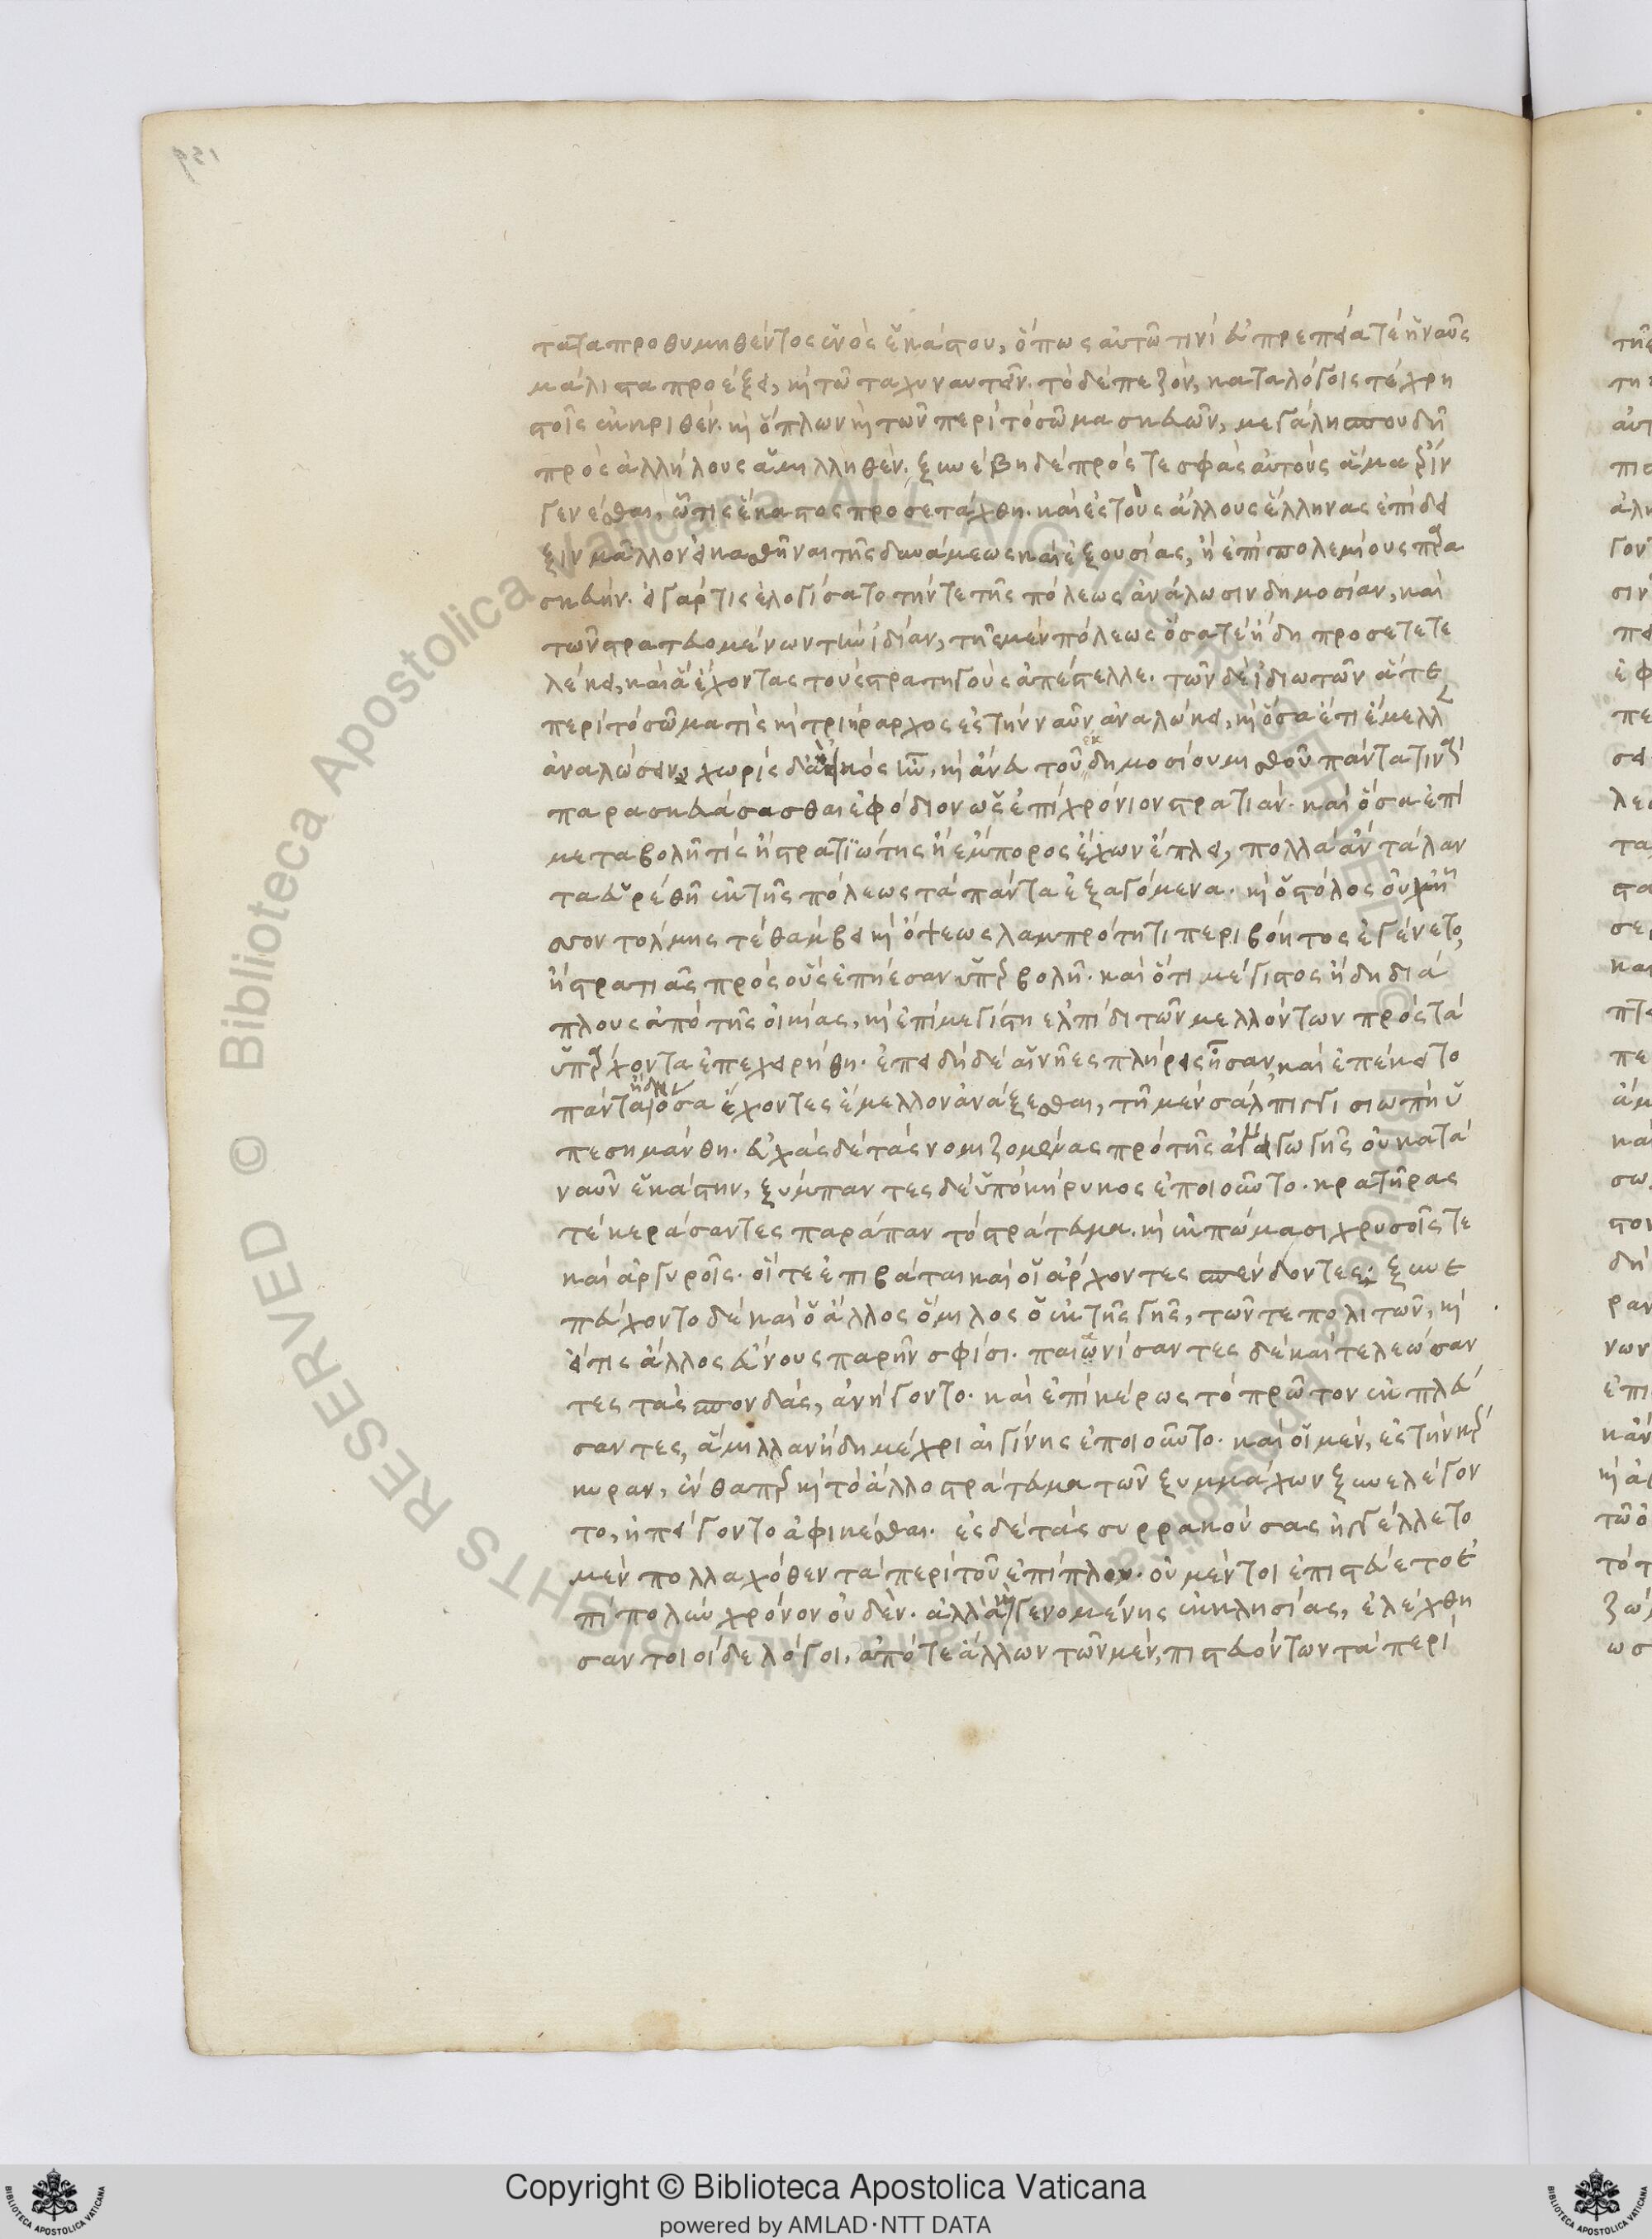 τατα προθυμηθέντος ἑνὸς ἑκάστου, ὅπως αὐτῶ τινὶ εὐπρεπείᾳ τὲ ἡ ναῦς
μάλιστα προέξει, κὴ τῶ ταχυναυτεῖν. τὸ δὲ πεζὸν, καταλόγοις τὲ χρη
στοῖς ἐκκριθὲν. κὴ ὅπλων κὴ τῶν περὶ τὸ σῶμα σκευῶν, μεγάλη σπουδῆ
πρὸς ἀλλήλους ἁμιλληθέν. ξυνέβη δὲ πρός τε σφὰς αὐτοὺς ἅμα ἔριν
γενέσθαι, ᾧ τις ἕκαστος προσετάχθη. καὶ ἐς τοὺς ἄλλους ἕλληνας ἐπίδει
ξιν μᾶλλον εἰκασθῆναι τῆς δυνάμεως καὶ ἐξουσίας, ἢ ἐπὶ πολεμίους παρα
σκευήν. εἰ γάρ τις ἐλογίσατο τήν τε τῆς πόλεως ἀνάλωσιν δημοσίαν, καὶ
τῶν στρατευομένων τὴν ἰδίαν, τῆς μὲν πόλεως ὅσα τὲ ἤδη προσετετε
λέκει, καὶ ἃ ἔχοντας τοὺς στρατηγοὺς ἀπέστελλε. τῶν δὲ ἰδιωτῶν ἅ τε
περὶ τὸ σῶμα τὶς κὴ τριήραρχος ἐς τὴν ναῦν ἀναλώκει, κὴ ὅσα ἔτι ἔμελλ
ἀναλώσειν, χωρὶς δ' ἃ εἰκὸς ἦν, κὴ ἄνευ τοῦ ἐκ δημοσίου μισθοῦ πάντα τινὰ
παρασκευάσασθαι ἐφόδιον ὡς ἐπὶ χρόνιον στρατιάν. καὶ ὅσα ἐπὶ
μεταβολῆ τὶς ἢ στρατϊώτης ἢ ἔμπορος ἔχων ἔπλει, πολλὰ ἂν τάλαν
τα εὑρέθη ἐκ τῆς πόλεως τὰ πάντα ἐξαγόμενα. κὴ ὁ στόλος οὐχ ἧσ
σον τόλμης τὲ θάμβει κὴ ὄψεως λαμπρότητι περιβόητος ἐγένετο,
ἢ στρατιᾶς πρὸς οὓς ἐπήεσαν ὑπερβολῆ. καὶ ὅτι μέγιστος ἤδη διά
πλους ἀπὸ τῆς οἰκίας, κὴ ἐπὶ μεγίστη ἐλπίδι τῶν μελλόντων πρὸς τὰ
ὑπάρχοντα ἐπεχειρήθη. ἐπειδὴ δὲ αἱ νῆες πλήρεις ἦσαν, καὶ ἐπέκειτο
πάντα ἤδη ὅσα ἔχοντες ἔμελλον ἀνάξεσθαι, τῆ μὲν σάλπιγγι σιωπὴ ὑ
πεσημάνθη. εὐχὰς δὲ τὰς νομιζομένας πρὸ τῆς ἀναγωγῆς οὐ κατὰ
ναῦν ἑκάστην, ξύμπαντες δὲ ὑπὸ κήρυκος ἐποιοῦντο. κρατῆρας
τὲ κεράσαντες παράπαν τὸ στράτευμα. κὴ ἐκπώμασι χρυσοῖς τε
καὶ ἀργυροῖς. οἵ τε ἐπιβάται καὶ οἱ ἄρχοντες σπένδοντες. ξυνε
πεύχοντο δὲ καὶ ὁ ἄλλος ὅμιλος ὁ ἐκ τῆς γῆς, τῶν τε πολιτῶν, κὴ
εἴ τις ἄλλος εὔνους παρῆν σφίσι. παιωνίσαντες δὲ καὶ τελεώσαν
τες τὰς σπονδὰς, ἀνήγοντο. καὶ ἐπὶ κέρως τὸ πρῶτον ἐκπλεύ
σαντες, ἅμιλλαν ἤδη μέχρι αἰγίνης ἐποιοῦντο. καὶ οἱ μὲν, ἐς τὴν κέρ
κυραν, ἔνθαπερ κὴ τὸ ἄλλο στράτευμα τῶν ξυμμάχων ξυνελέγον
το, ἠπείγοντο ἀφικέσθαι. ἐς δὲ τὰς συρρακούσας ἠγγέλλετο
μὲν πολλαχόθεν τὰ περὶ τοῦ ἐπίπλου. οὐ μέντοι ἐπιστεύετο ἐ
πὶ πολὺν χρόνον οὐδὲν. ἀλλὰ κὴ γενομένης ἐκκλησίας, ἐλέχθη
σαν τοιοίδε λόγοι, ἀπό τε ἄλλων τῶν μὲν, πιστευόντων τὰ περὶ
Copyright © Biblioteca Apostolica Vaticana
powered by AMLAD·NTT DATA